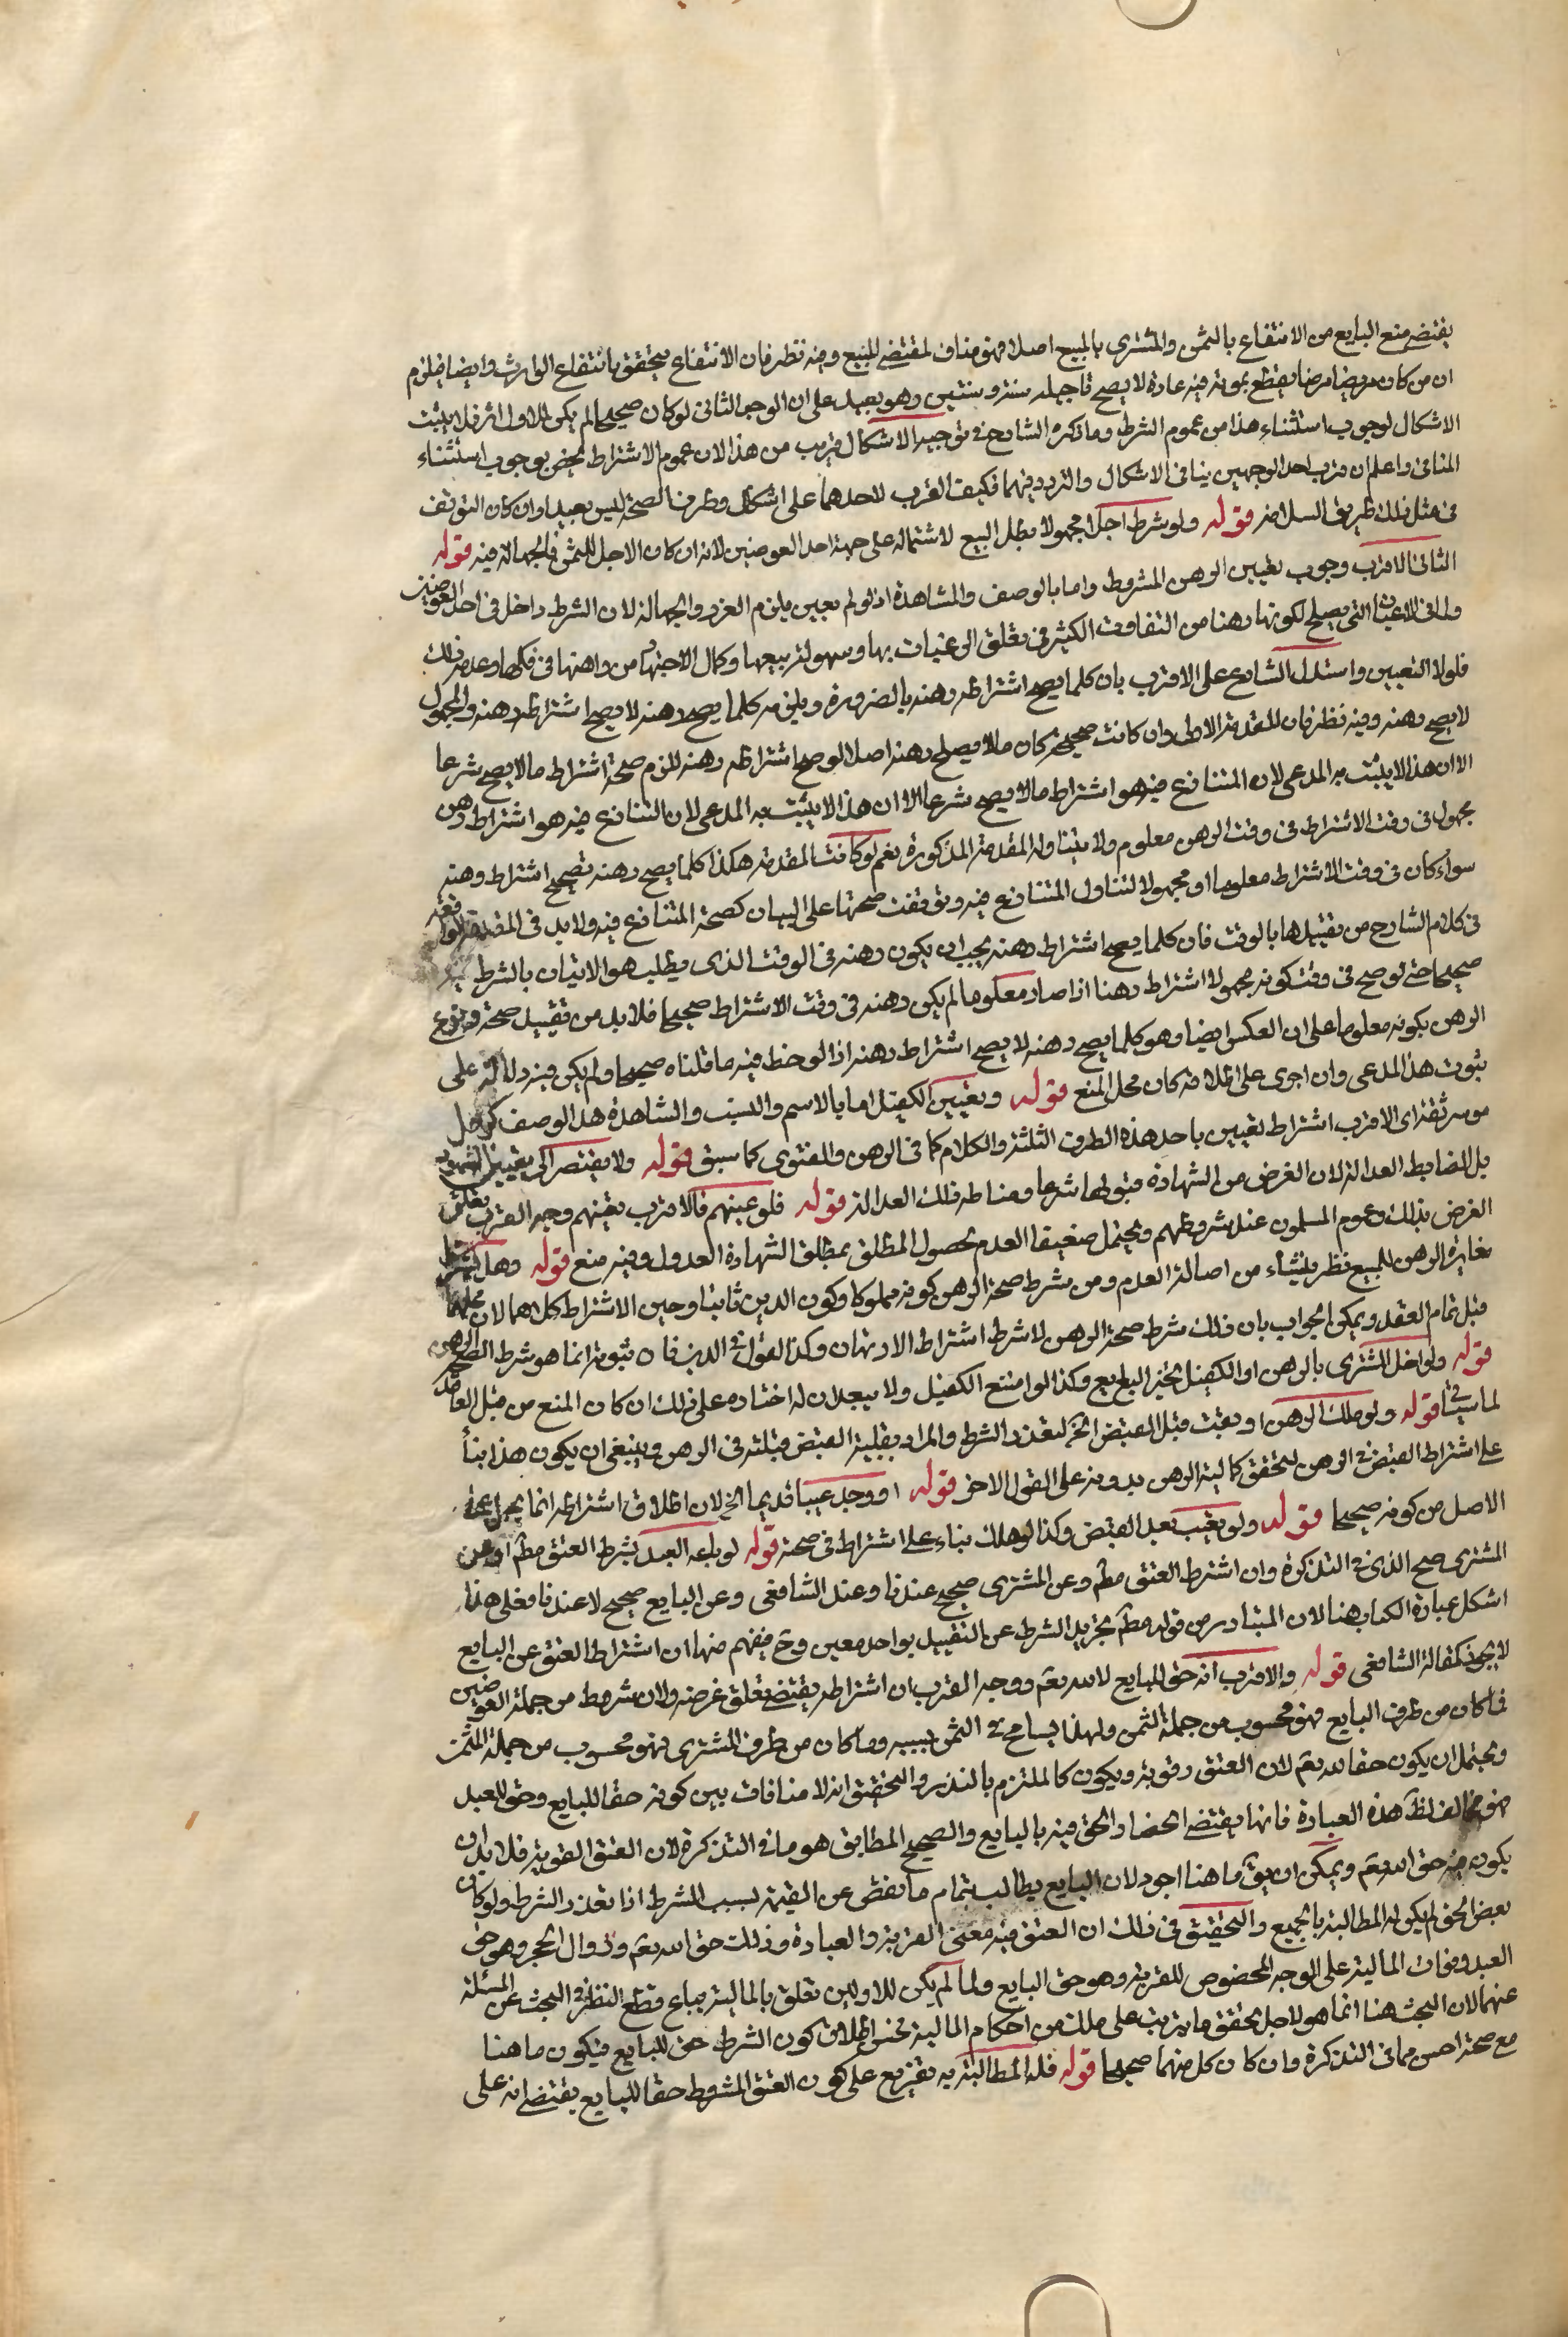 يقتضي منع البايع من الانتفاع بالثمن والمشتري بالمبيع اصلا فهو مناف لمقتضى المبيع وفيه نظر فان الانتفاع يتحقق بانتفاع الوارث وايضا فيلزم
ان من كان مريضا مرضا يقطع بموته فيه عادة لا يصح تاجيله سنة وسنتين وهو بعيد على ان الوجه الثاني لو كان صحيحا لم يكن للاول اثر فلا يثبت
الاشكال لوجوب استثناء هذا من عموم الشرط وما ذكره الشارح في توجيه الاشكال قريب من هذا الا ان عموم الاشتراط مخص بوجوب استثناء
المنافي واعلم ان قرب احد الوجهين ينافي الاشكال والتردد فيهما فكيف القرب لاحدهما على اشكال وطرف الصحة ليس بعيدا وان كان التوقف
في مثل ذلك طريق السلامة قوله ولو شرط اجلا مجهولا بطل البيع لاشتماله على جهة احد العوضين لانه ان كان الاجل للثمن فالجهالة فيه قوله
الثاني الاقرب وجوب تعيين الرهن المشروط واما بالوصف والمشاهدة اذ لو لم يعين يلزم الغرر والجهالة لان الشرط داخل في احد العوضين
ولما في الاعيان التي يصلح لكونها رهنا من التفاوت الكثير في تعلق الرغبات بها وسهولة بيعها وكمال الاجتهاد من راهنها في فكها وعدم ذلك
فلولا التعيين واستدل الشارح على الاقرب بان كلما يصح اشتراطه رهنه بالضرورة ويلزمه كلما يصح رهنه لا يصح اشتراطه رهنه والمجهول
لا يصح رهنه وفيه نظر فان المقدمة الاولى وان كانت صحيحة كان ما لا يصلح رهنه اصلا لو صح اشتراطه رهنه للزم صحة اشتراط ما لا يصح شرعا
الا ان هذا لا يثبت به المدعى لان المتنازع فيه هو اشتراط ما لا يصح شرعا الا ان هذا لا يثبت به المدعى لان المتنازع فيه هو اشتراط رهن
مجهول في وقت الاشتراط في وقت الرهن معلوم ولا يتناوله المقدمة المذكورة نعم لو كانت المقدمة هكذا كلما يصح رهنه يصح اشتراط رهنه
سواء كان في وقت الاشتراط معلوما او مجهولا لتناول المتنازع فيه وتوقفت صحتها على البيان كصحة المتنازع فيه ولا بد في المقدمة الواقعة
في كلام الشارح من تقييدها بالوقت فان كلما يصح اشتراط رهنه يجب ان يكون رهنه في الوقت الذي يطلب هو الاتيان بالشرط فيه
صحيحا حتى لو صح في وقت كونه مجهولا اشتراط رهنا اذا صار معلوما لم يكن رهنه في وقت الاشتراط صحيحا فلا بد من تقييد صحة وقوع
الرهن بكونه معلوما على ان العكس ايضا وهو كلما يصح رهنه لا يصح اشتراط رهنه اذا لوحظ فيه ما قلناه صحيحا ولم يكن فيه دلالة على
ثبوت هذا المدعى وان اجرى على اطلاقه كان محل المنع قوله وتعيين الكفيل اما بالاسم والنسب والمشاهدة هذا الوصف كرجل
موسر ثقة اي الاقرب اشتراط تعيين باحد هذه الطرق الثلثة والكلام كما في الرهن والفتوى كما سبق قوله ولا يفتقر الى تعيين الشهود
بل الضابط العدالة لان الغرض من الشهادة قبولها شرعا ومناطه فلك العدالة قوله فلو عينهم فالاقرب تعينهم وجه القرب تعلق
الغرض بذلك وعموم المسلمون عند شروطهم ويحتمل ضعيفا العدم لحصول المطلق بمطلق الشهادة العدول وفيه منع قوله وهل يشترط
مغايرة الرهن للمبيع نظر ينشاء من اصالة العدم ومن شرط صحة الرهن كونه مملوكا وكون الدين ثابتا وحين الاشتراط كلاهما لان محلهما
قبل تمام العقد ويمكن الجواب بان ذلك شرط صحة الرهن لا شرط اشتراط الارتهان وكذا القول في الدين فان ثبوته انما هو شرط لصحة الرهن
قوله ولو اخل المشتري بالرهن او الكفيل تخير البايع وكذا لو امتنع الكفيل ولا يبعد ان له اختاره على ذلك ان كان المنع من قبل العاقد
لما سيأتي قوله ولو هلك الرهن او تعيب قبل القبض الخ لتعذر الشرط والمراد بقبلية القبض قبلته في الرهن وينبغي ان يكون هذا بناء
على اشتراط القبض في الرهن لتحقق كمالية الرهن بدونه على القول الاخر قوله او وجد عيبا قديما الخ لان اطلاق اشتراطه انما يحمل على
الاصل من كونه صحيحا قوله ولو تعيب بعد القبض وكذا لو هلك بناء على اشتراط في صحة قوله لو باعه العبد بشرط العتق مطلقا او عن
المشتري صح الذي في التذكرة وان اشترط العتق مطم وعن المشتري صحيح عندنا وعند الشافعي وعن البايع صحيح لا عندنا فعلى هذا
اشكل عبارة الكتاب هنا لان المتبادر من قوله مطم تجريد الشرط عن التقييد بواحد معين وح فيفهم منها ان اشتراط العتق عن البايع
لا يجوز كمقالة الشافعي قوله والاقرب انه حق للبايع لا لله تعم ووجه القرب ان اشتراطه يقتضي تعلق غرضه ولان شرط من جملة العوضين
فما كان من طرف البايع فهو محسوب من جملة الثمن ولهذا يسامح في الثمن بسببه وما كان من طرف المشتري فهو محسوب من جملة المثمن
ويحتمل ان يكون حقا لله تعم لان العتق رقوبة ويكون كالملتزم بالنذر والتحقيق انه لا منافات بين كونه حقا للبايع وحق للعبد
فهو مخالف لظ هذه العبارة فانها يقتضي انحصار الحق فيه بالبايع والصحيح المطابق هو ما في التذكرة لان العتق القوية فلا بد ان
يكون فيه حق الله تعم ويمكن ان يق ما هنا اجود لان البايع يطالب بتمام ما نقص عن القيمة لسبب الشرط اذا تعذر الشرط ولو كان
بعض الحق لم يكن له المطالبة بالجميع والتحقيق في ذلك ان العتق فيه معنى القربة والعبادة وذلك حق الله تعم وزوال الحجر وهو حق
العبد وفوات المالية على الوجه المخصوص للقربة وهو حق البايع ولما لم يكن للاولين تعلق بالمالية يباع وقطع النظر في البحث عن المسئلة
عنهما لان البحث هنا انما هو لاجل تحقق ما يترتب على ملك من احكام المالية تحسن اطلاق كون الشرط حق للبايع فيكون ما هنا
مع صحة احسن مما في التذكرة وان كان كل منهما صحيحا قوله فله المطالبة به تفريع على كون العتق المشروط حقا للبايع يقتضي انه على